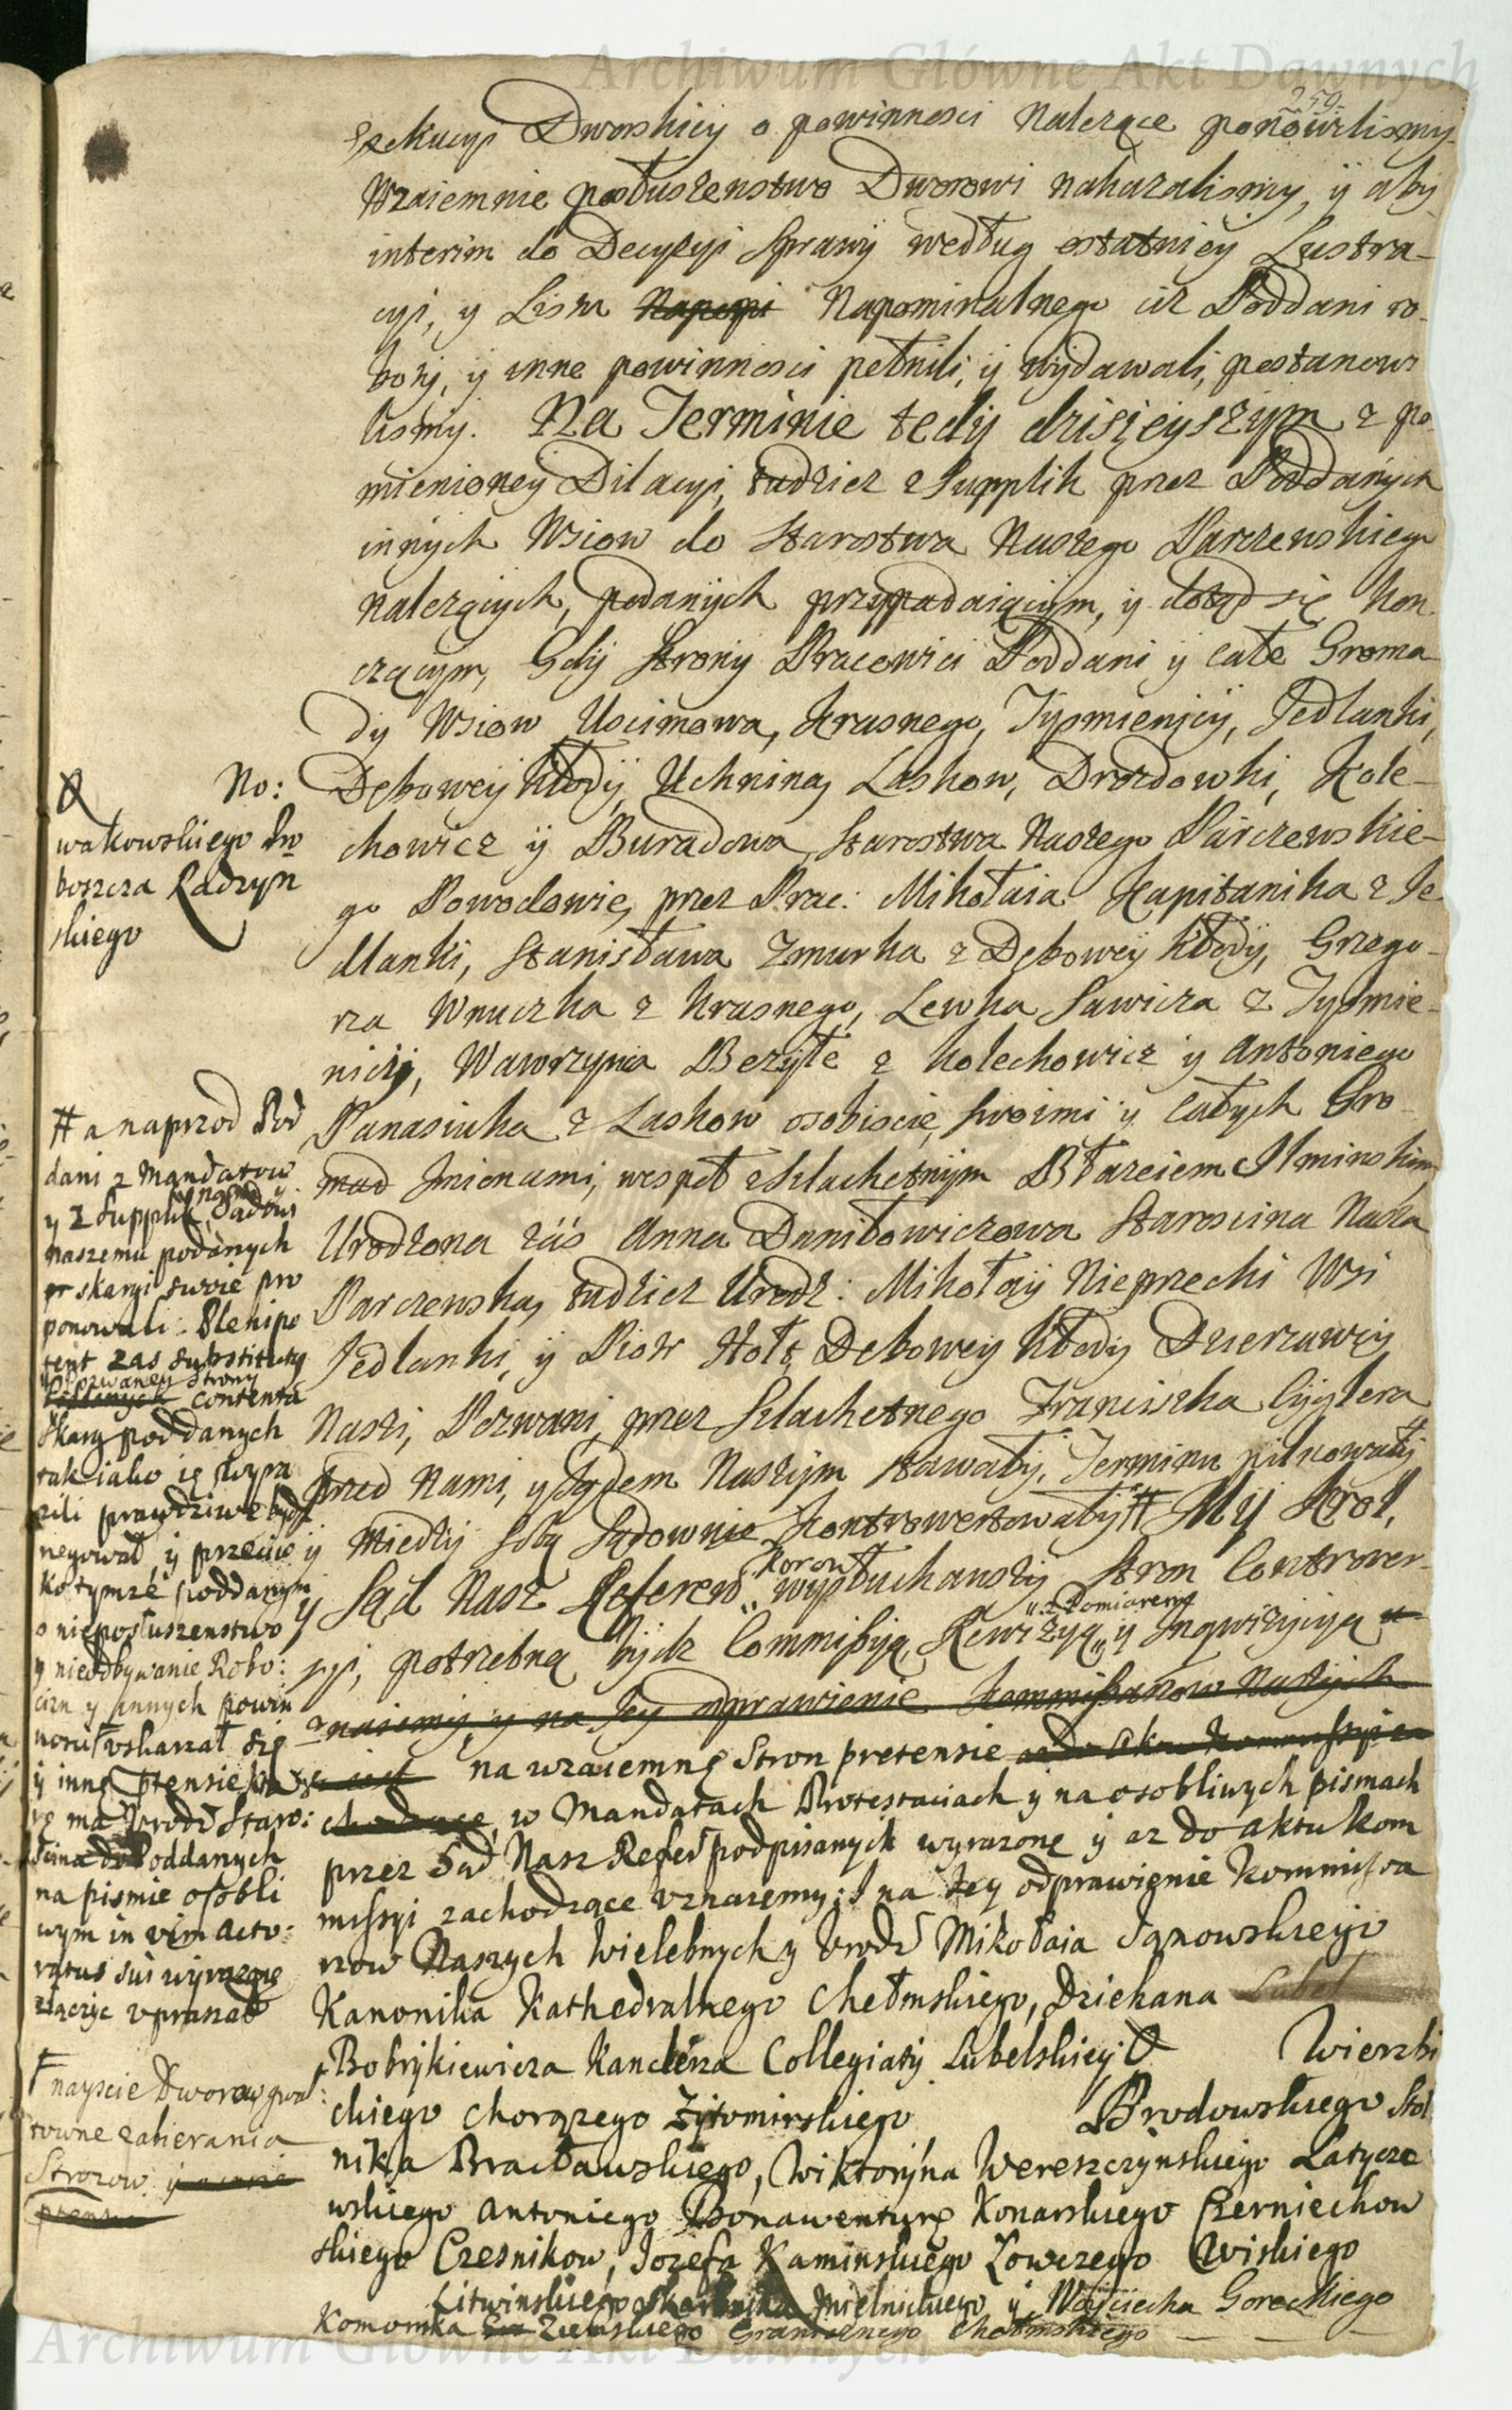 Archiwum Główne Akt Dawnych
259.
Exekucyi Dworskiey o powinnosci Nalezące ponowilismy
Wzaiemnie posłuszenstwo Dworowi nakazalismy, ÿ aby
interim do Decyzyi Sprawÿ według ostatnieÿ Lustra-
cyi, y Listu Napopi Napominalnego ciż Poddani ro-
boty, ÿ inne powinnosci pełnili, ÿ wÿdawali, postanowi
lismy. Na Terminie tedÿ dzisieyszym z po
mienioney Dilacyi, tudziez z Supplik przez Poddanÿch
innÿch Wsiow do Starostwa Naszego Parczewskiego
nalezącÿch, podanÿch przypadaiącÿm, ÿ dotąd się kon
czącym, Gdÿ Stronÿ Pracowici Poddani ÿ całe Groma
dÿ Wsiow Uscimowa, Krasnego, Tysmienicÿ, Jedlanki,
Dęboweÿ kłodÿ, Uchnina, Laskow, Drozdowki, Kole-
chowicz ÿ Buradowa, Starostwa Naszego Parczewskie-
go Powodowie, przez Prac: Mikołaia Kapitanika z Je
dlanki, Stanisława Zmurka z Dęboweÿ kłodÿ, Grzego-
rza Wnuczka z Krasnego, Lewka Sawicza z Tysmie-
nicÿ, Wawrzynca Bezÿłe z Kolechowicz ÿ Antoniego
Panasiuka z Laskow osobiscie, swoimi ÿ całÿch Gro-
mad Imienami, wespoł z Szlachetnÿm Błazeiem Ilminskim
Urodzona zas Anna Daniłowiczowa Staroscina Nasza
Parczewska, tudziez Urodz: Mikołaÿ Nieprzecki Wsi
Jedlanki, ÿ Piotr Hołs Dębowey kłodÿ Dzierzawcÿ
Nasi, Pozwani, przez Szlachetnego Franciszka Cyglera
przed Nami, y Sądem Naszÿm stawałÿ, Terminu pilnowałÿ
ÿ miedzÿ sobą Sądownie kontrowertowałÿ # Mÿ Krol,
y Sąd Nasz Referen „ Koron wysłuchawszÿ Stron Contrower-
syi, potrzebną bÿdz Commissyą, Rewizyą „ z Pomiarem ÿ Inqwizÿcyą u-
znaiemÿ, y na Iey odprawienie Kommissarzow Naszÿch
na wzaiemne Stron pretensie az do aktu Kommissyi za
chodzące, w Mandatach Protestaciach ÿ na osobliwych pismach
przez Sąd Nasz Refer podpisanych wyrazone ÿ az do aktu kom
missyi zachodzące uznaiemy; I na Iey odprawienie kommissa
rzow Naszych Wielebnych y Urodz Mikołaia Janowskiego
Kanonika Kathedralnego Chełmskiego, Dziekana Lubel
Bobrykiewicza Kanclerza Collegiatÿ Lubelskiey Wierzbi
ckiego Chorązego Zÿtomirskiego Brodowskiego Stol
nika Bracławskiego, Wiktorÿna Wereszczynskiego Latycze
wskiego Antoniego Bonawenturę Konarskiego Czerniechow
skiego Czesnikow, Jozefa Kaminskiego Łowczego Wiskiego
Litwinskiego Skarbnika Mielnickiego ÿ Woÿciecha Goreckiego
Komornika Ziemskiego Granicznego Chełmskiego
No:
wakowskiego Pro
boszcza Radzyn
skiego
# a naprzod Pod
dani z Mandatow
y z Supplik naszemu y Sądowi
naszemu podanych
skargi swoie pro
ponowali. Plenipo
tent zas substitutÿ
ÿ Pozwaney Strony
contenta
skarg poddanych
tak iako ię wyra
zili prawdziwe bydz
negował, ÿ przeciw
ko tymze poddanym
o nieposłuszenstwo
y nieodbywanie Robo:
cizn y innych powin
nosci uskarzał się
ÿ inne ptensie, kto
re ma Urodz Staro:
scina do Poddanych
na pismie osobli
wym in vim acto:
ratus sui wyrazone
złączyc upraszał
naÿscie Dworow gwał
towne zabierania
Strozow
Archiwum Główne Akt Dawnych